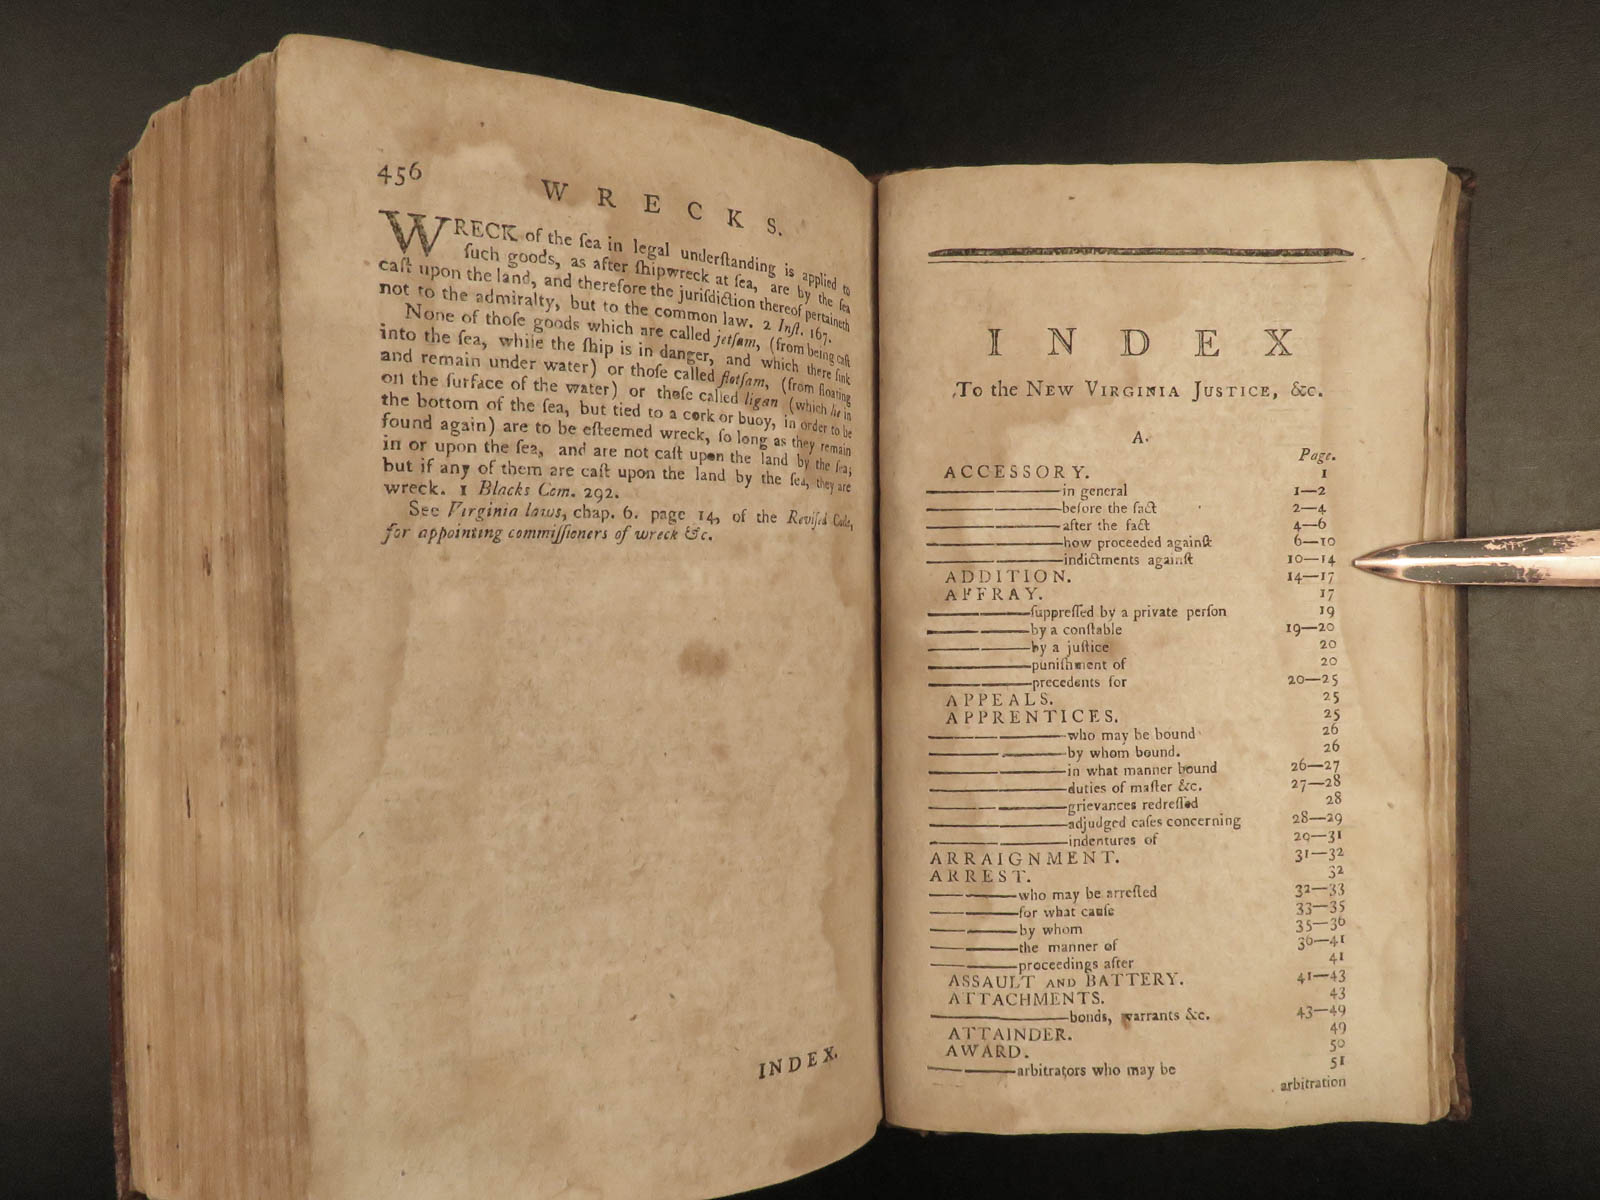 456
WRECKS.
WRECK of the ſea in legal underſtanding is applied to
ſuch goods, as after ſhipwreck at ſea, are by the ſea
caſt upon the land, and therefore the juriſdiction thereof pertaineth
not to the admiralty, but to the common law. 2 Inſt. 167.
None of thoſe goods which are called jetſam, (from being caſt
into the ſea, while the ſhip is in danger, and which there ſink
and remain under water) or thoſe called flotſam, (from floating
on the ſurface of the water) or thoſe called ligan (which lie in
the bottom of the ſea, but tied to a cork or buoy, in order to be
found again) are to be eſteemed wreck, ſo long as they remain
in or upon the ſea, and are not caſt upon the land by the ſea;
but if any of them are caſt upon the land by the ſea, they are
wreck. 1 Blacks Com. 292.
See Virginia laws, chap. 6. page 14, of the Reviſed Code,
for appointing commiſſioners of wreck &c.
INDEX.
INDEX
To the NEW VIRGINIA JUSTICE, &c.
A.
Page.
ACCESSORY. 1
——— in general 1—2
——— before the fact 2—4
——— after the fact 4—6
——— how proceeded againſt 6—10
——— indictments againſt 10—14
ADDITION. 14—17
AFFRAY. 17
——— ſuppreſſed by a private perſon 19
——— by a conſtable 19—20
——— by a juſtice 20
——— puniſhment of 20
——— precedents for 20—25
APPEALS. 25
APPRENTICES. 25
——— who may be bound 26
——— by whom bound. 26
——— in what manner bound 26—27
——— duties of maſter &c. 27—28
——— grievances redreſſed 28
——— adjudged caſes concerning 28—29
——— indentures of 29—31
ARRAIGNMENT. 31—32
ARREST. 32
——— who may be arreſted 32—33
——— for what cauſe 33—35
——— by whom 35—36
——— the manner of 36—41
——— proceedings after 41
ASSAULT AND BATTERY. 41—43
ATTACHMENTS. 43
——— bonds, warrants &c. 43—49
ATTAINDER. 49
AWARD. 50
——— arbitrators who may be 51
arbitration